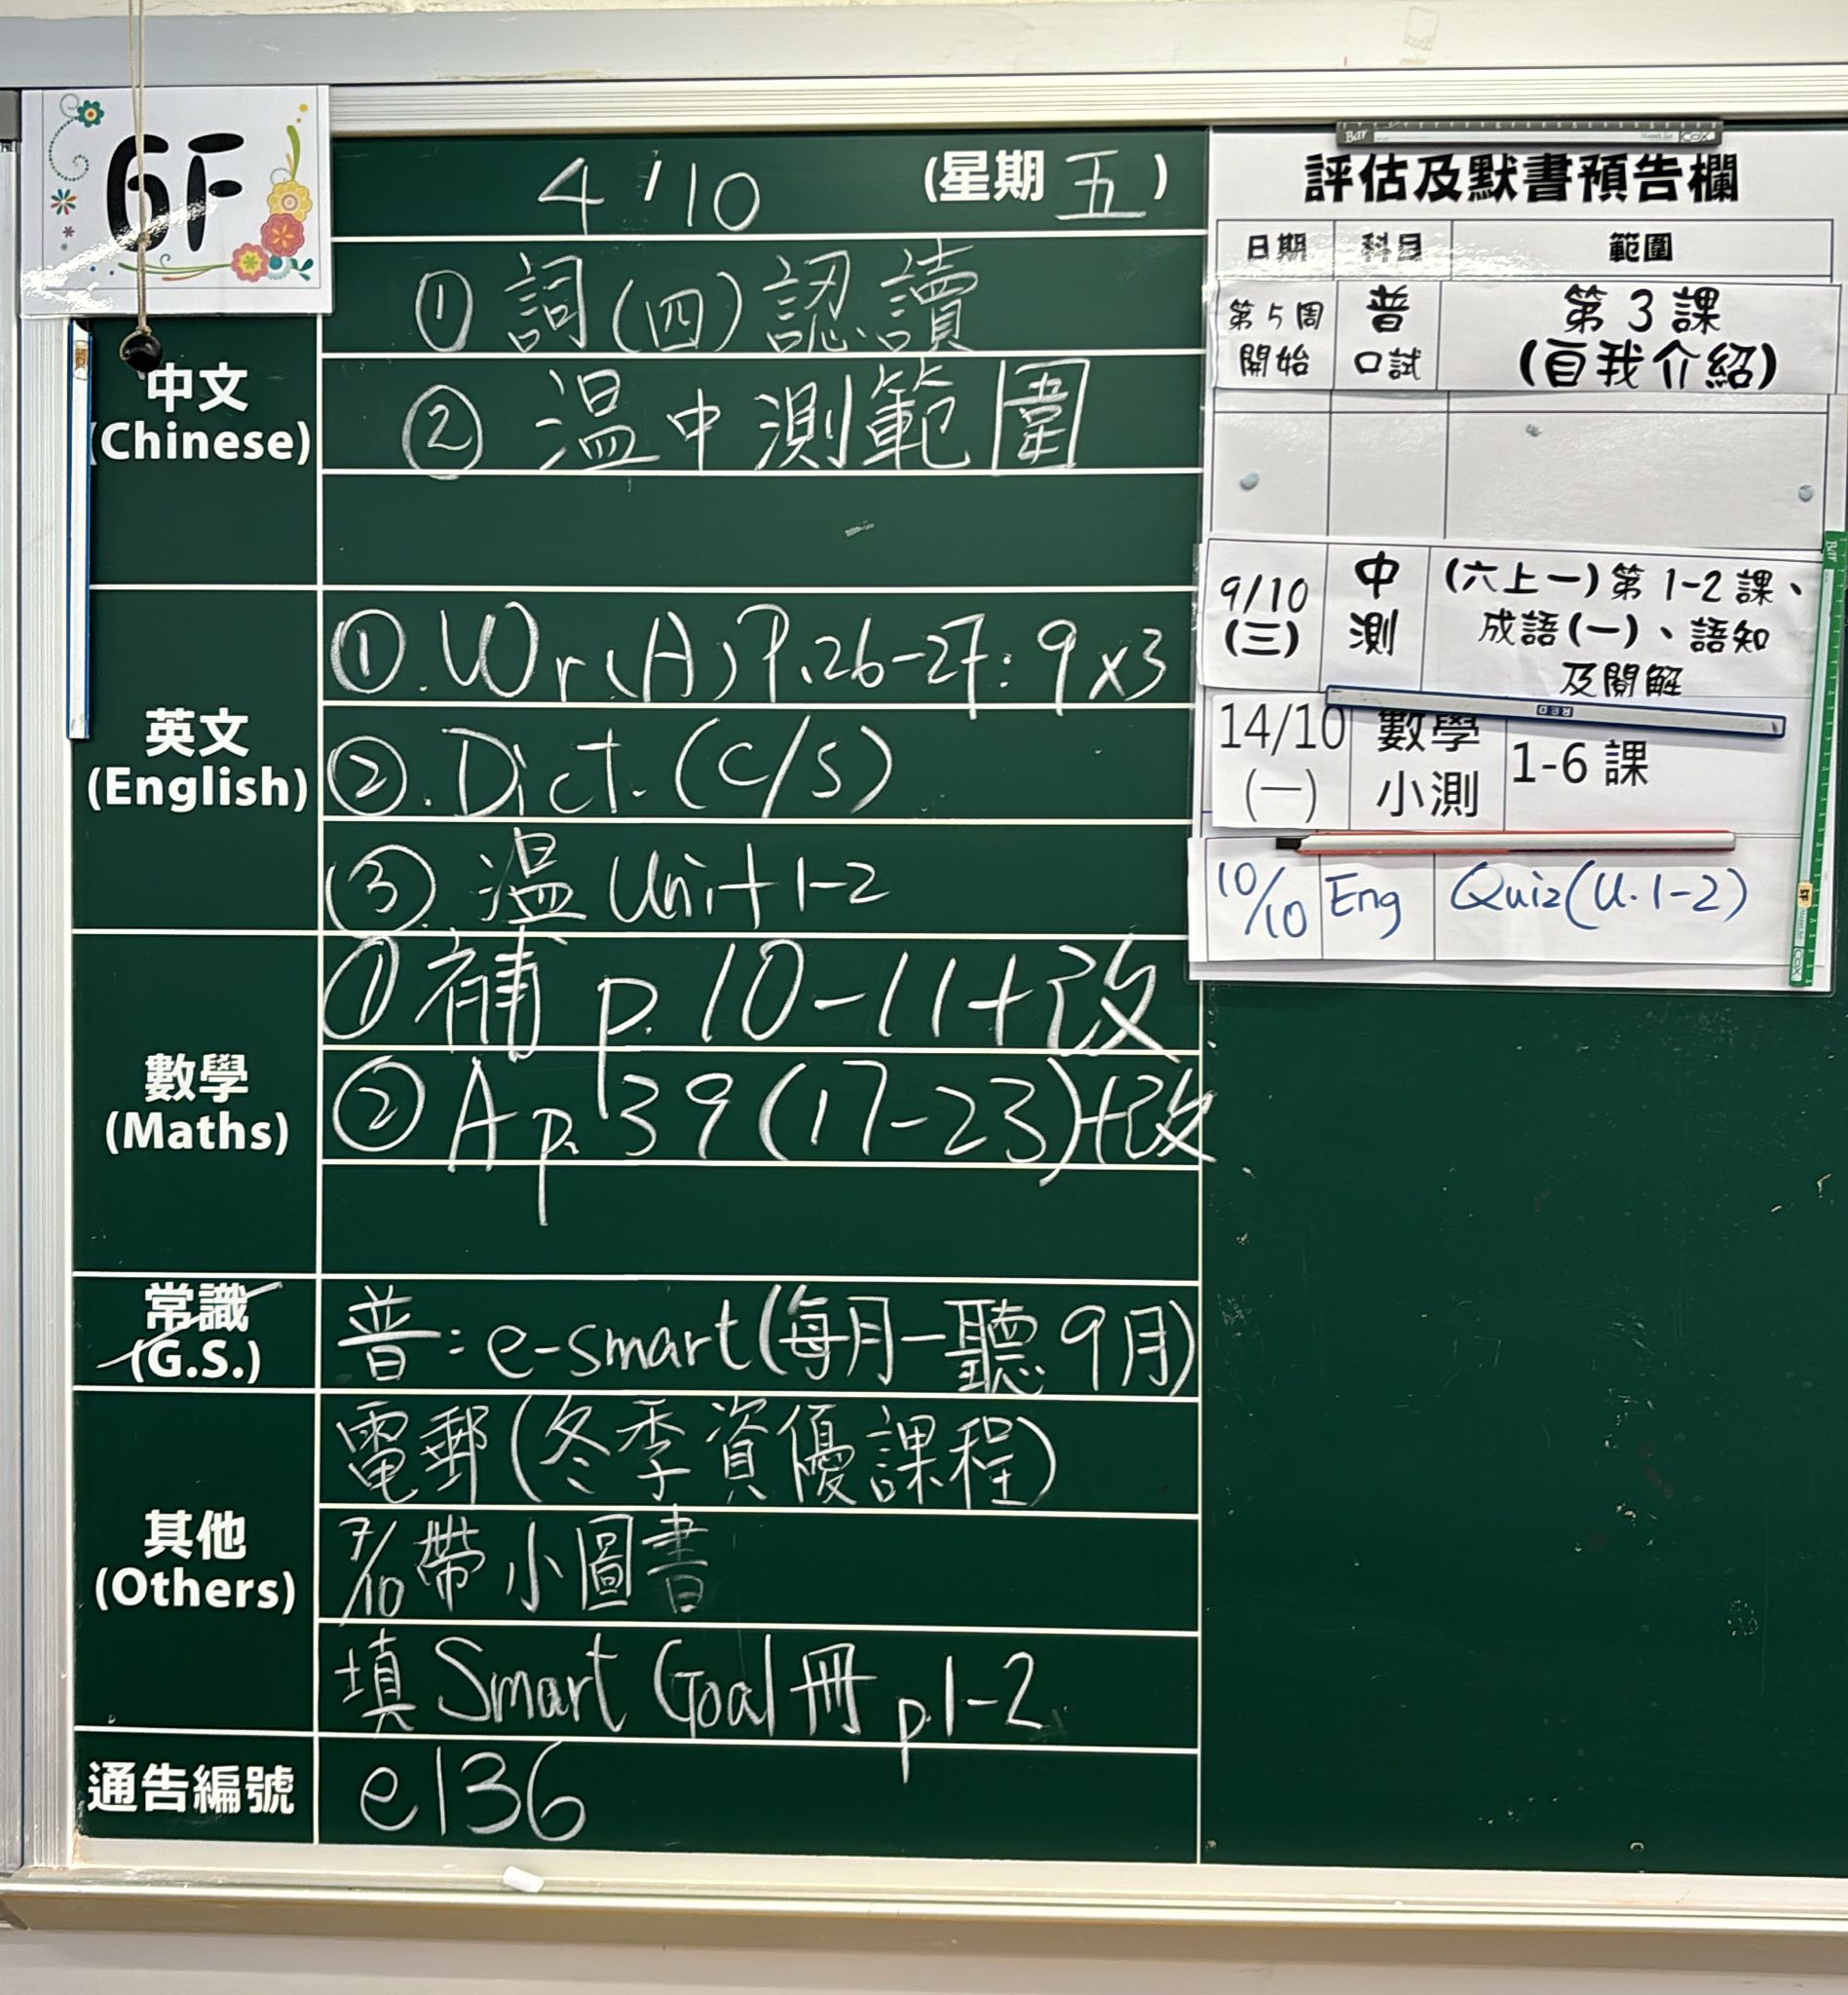 6F
4/10 (星期五)
中文
(Chinese)
① 詞(四)認讀
② 溫中測範圍
英文
(English)
①. Wr.(A) P.26-27: 9x3
②. Dict. (C/S)
③. 溫 Unit 1-2
數學
(Maths)
① 補 p. 10-11+改
② A p. 39 (17-23)+改
常識
(G.S.)
普: e-smart(每月一聽 9月)
其他
(Others)
電郵(冬季資優課程)
7/10 帶小圖書
填 Smart Goal 冊 p.1-2
通告編號
e136
評估及默書預告欄
日期 科目 範圍
第5周開始 普口試 第3課(自我介紹)
9/10(三) 中測 (六上一)第1-2課、成語(一)、語知及閱解
14/10(一) 數學小測 1-6課
10/10 Eng Quiz(U.1-2)